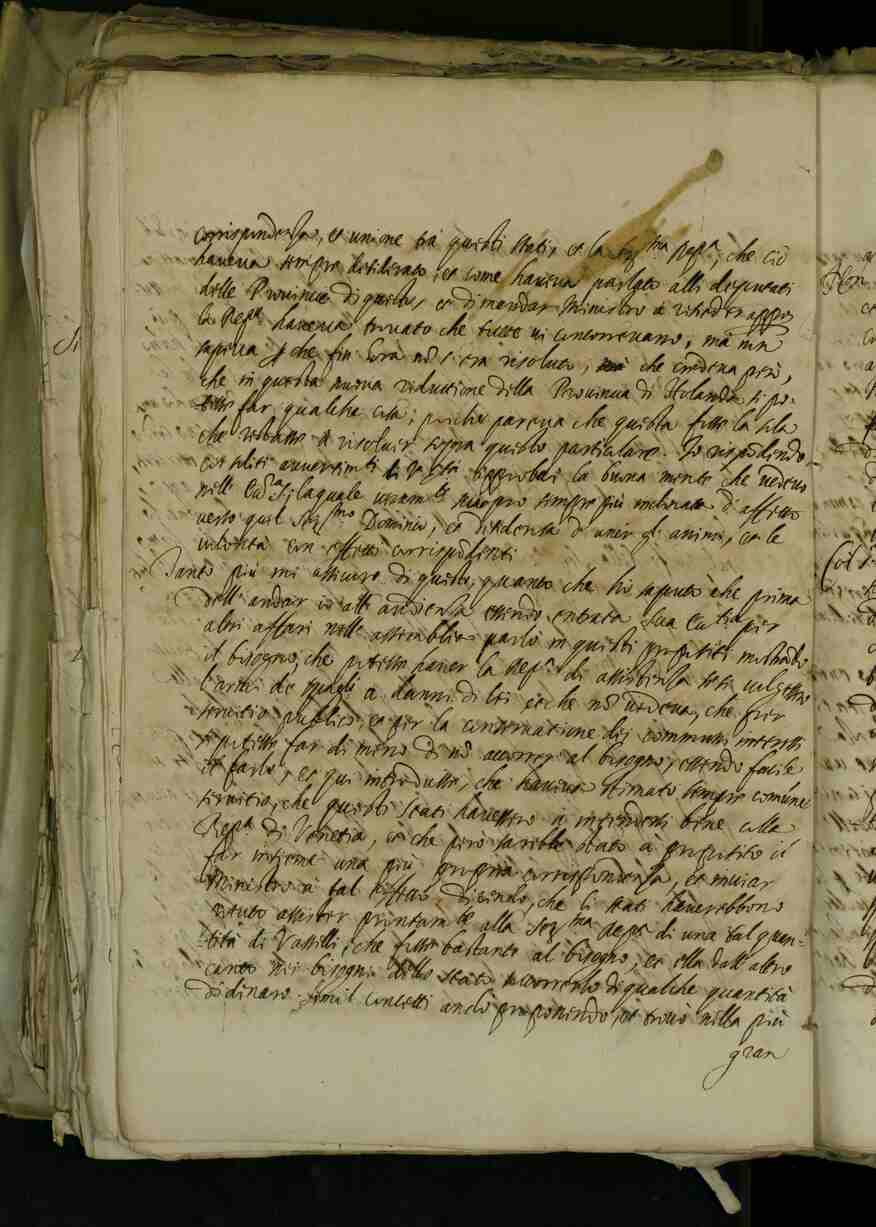 corrispondenza, et unione trà questi stati, et la Ser.ma Rep.a, che ciò
haveva sempre desiderato; et come haveva parlato alli deputati
delle Provincie di questo, et di mandar Ministro à risieder appresso
la Rep.a haveva trovato che tutte vi concorrevano, mà non
sapeva che fin hora nõ s'era risoluto, che credeva però,
che in questa nuova reduttione della Provincia di Holanda si po-
tesse far qualche cosa; poiche pareva che questa fosse la sola
che restasse à risolver sopra questo particolare. Io rispondendo
la buona mente che vedevo
nell' Ecc.a S. laquale sempre più inclinata d'affetto
verso quel Ser.mo Dominio, et desiderosa d'unir gl'animi, et le
volontà con effetti corrispondenti.
Tanto più mi assicuro di questo, quanto che hò saputo che prima
dell' andar io all' audienza essendo entrata sua Ecc.a per
altri affari nell' assemblea parlò in questi propositi mostrando
il bisogno, che potesse haver la Rep.a di assistenza
l'armi de spagli à danni di lei et che nõ vedeva, che per
servitio publico, et per la conservatione dei communi interessi
si potesse far di meno di nõ accorrer al bisogno, essendo facile
il farlo, et qui introdusse, che haveva stimato sempre comune
servitio, che questi stati havessero à intendersi bene colla
Rep.a di Venetia, et che però sarebbe stato à proposito il
far insieme una più propria corrispondenza, et inviar
Ministro à tal effetto, dicendo, che li stati haverebbono
potuto assister prontam.te alla Ser.ma Rep.a di una tal quan-
tità di Vasselli, che fosse bastante al bisogno, et ella dall' altro
canto nei bisogni dello stato soccorrerlo di qualche quantità
di dinaro. simil concetti andò proponendo, et trovò nella più
gran